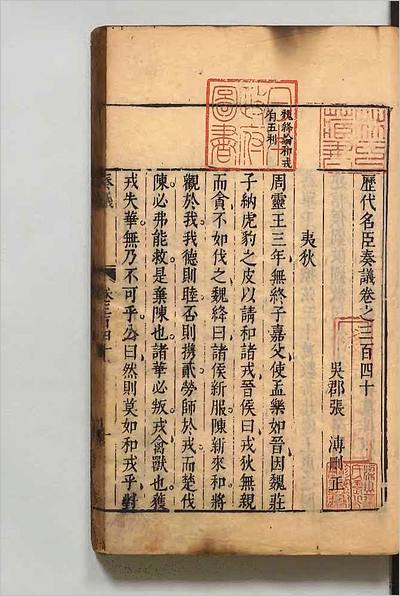 歷代名臣奏議卷之三百四十
吳郡張 溥刪正
夷狄
周靈王三年無終子嘉父使孟樂如晉因魏莊
子納虎豹之皮以請和諸戎晉侯曰戎狄無親
而貪不如伐之魏絳曰諸侯新服陳新來和將
觀於我我德則睦否則攜貳勞師於戎而楚伐
陳必弗能救是棄陳也諸華必叛戎禽獸也獲
戎失華無乃不可乎公曰然則莫如和戎乎對
魏絳論和戎
有五利
圖書